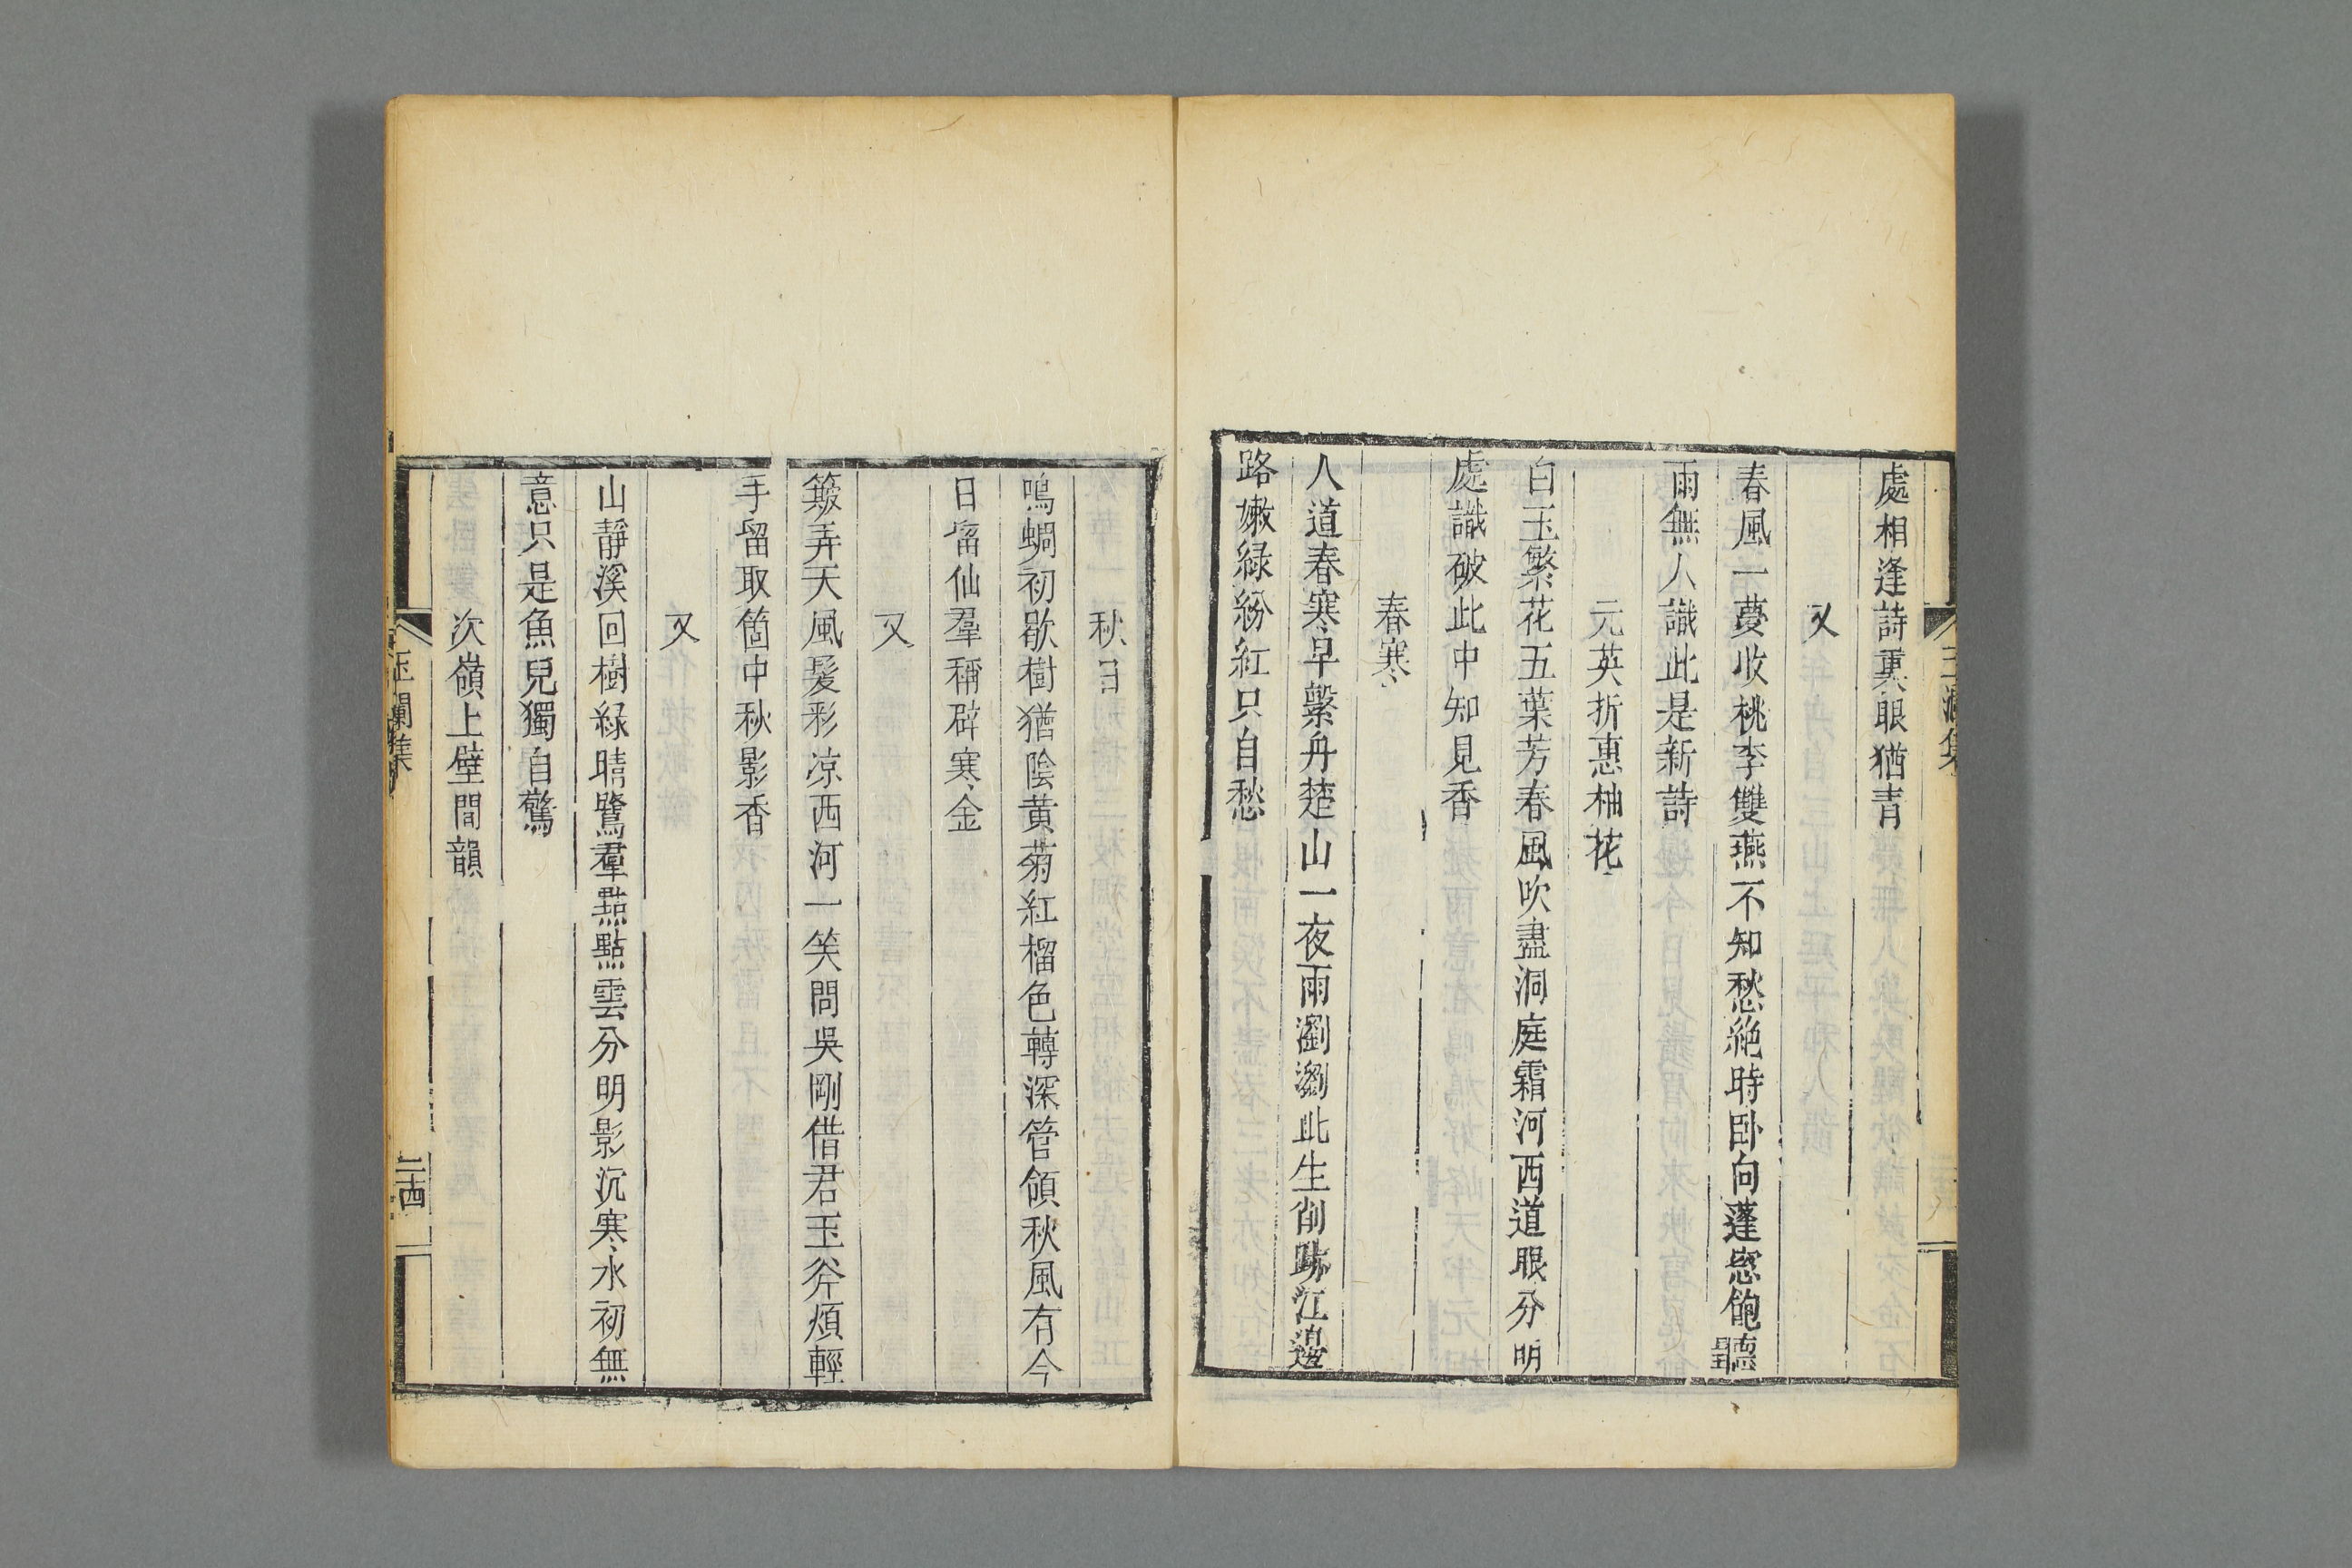 處相逢詩裏眼猶青
又
春風一夢收桃李雙燕不知愁絶時卧向蓬窓飽聽
雨無人識此是新詩
元英折惠柚花
白玉繁花五葉芳春風吹盡洞庭霜河西道眼分明
處識破此中知見香
春寒
人道春寒早繫舟楚山一夜雨瀏瀏此生削跡江邊
路嫩緑紛紅只自愁
秋日
鳴蜩初歇樹猶陰黄菊紅榴色轉深管領秋風有今
日富仙羣稱辟寒金
又
簸弄天風髮彩凉西河一笑問吳剛借君玉斧煩輕
手留取箇中秋影香
又
山靜溪回樹緑晴鷺羣㸃點雲分明影沉寒水初無
意只是魚兒獨自驚
次嶺上壁間韻
玉瀾集
二四